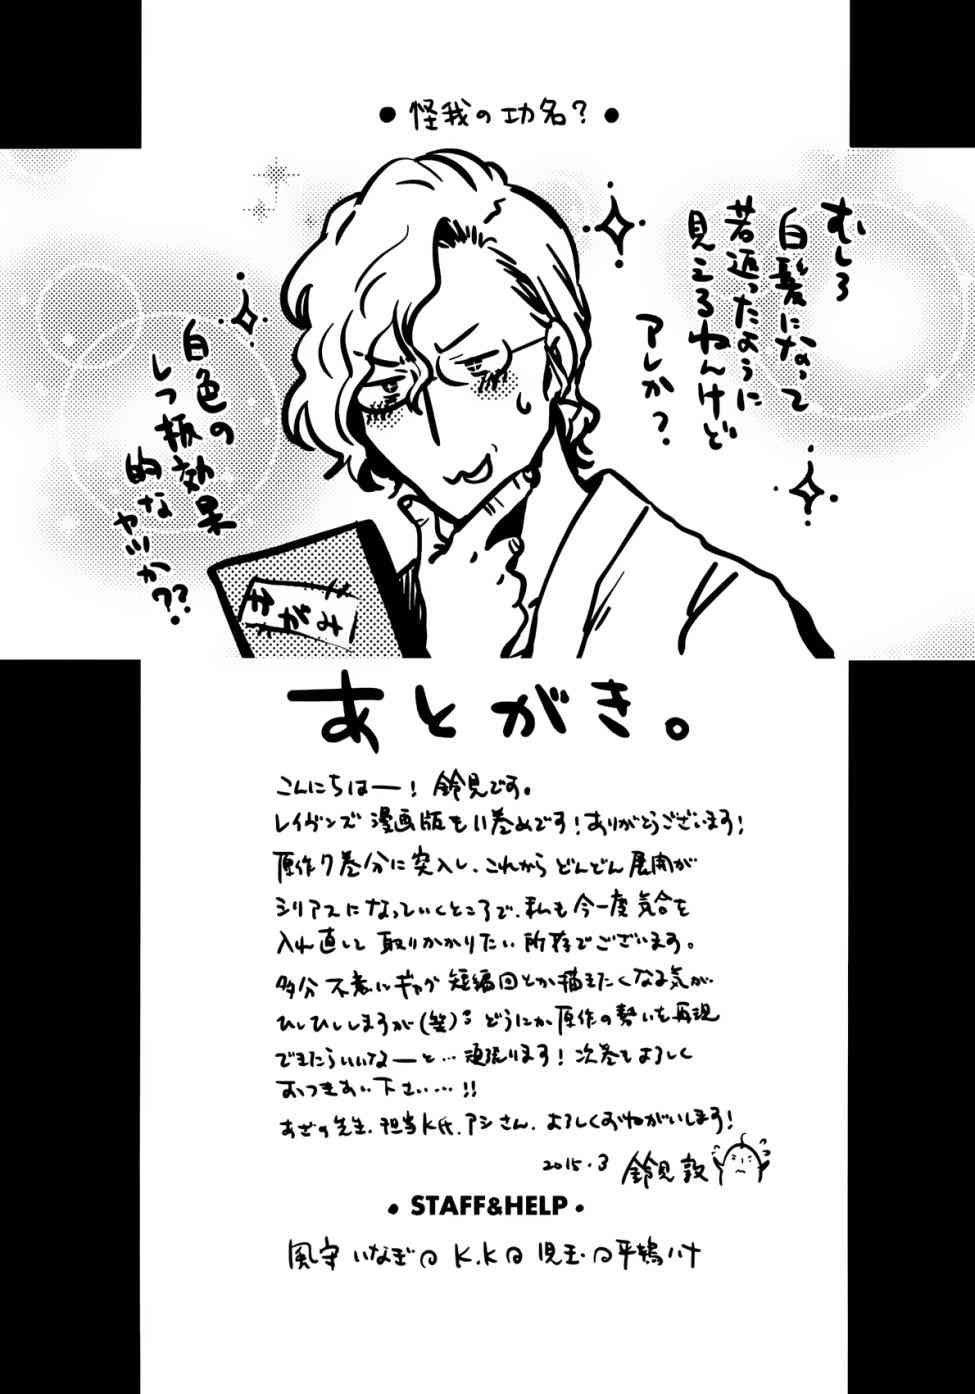 ● 怪我の功名? ●
むしろ
白髪になって
若返ったように
見えるねんけど
アレか?
白色の
レフ板効果
的な
ヤツか??
かがみ
あとがき。
こんにちはー! 鈴見です。
レイヴンズ 漫画版も11巻めです!ありがとうございます!
原作7巻分に突入し、これからどんどん展開が
シリアスになっていくところで、私も今一度気合を
入れ直して取りかかりたい所存でございます。
多分不意にギャグ短編回とか描きたくなる気が
ひしひししますが(笑)どうにか原作の勢いを再現
できたらいいなーと…頑張ります!次巻もよろしく
おつきあい下さい…!!
あざの先生、担当K氏、アシさん、よろしくおねがいします!
2015.3 鈴見敦
● STAFF&HELP ●
風守いなぎ K.K 児玉 平鴇ハナ